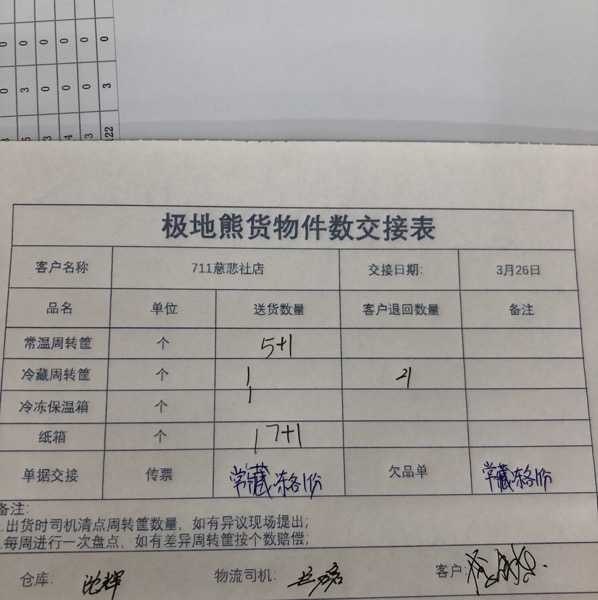 0 0 0 0 0
0 3 0 0 3
3 4 3 122
极地熊货物件数交接表
客户名称 711慈悲社店 交接日期: 3月26日
品名 单位 送货数量 客户退回数量 备注
常温周转筐 个 5+1
冷藏周转筐 个 1 21
冷冻保温箱 个 1
纸箱 个 17+1
单据交接 传票 常藏冻各1份 欠品单 常藏冻各1份
备注:
.出货时司机清点周转筐数量，如有异议现场提出;
.每周进行一次盘点，如有差异周转筐按个数赔偿;
仓库: 沈辉 物流司机: 客户: